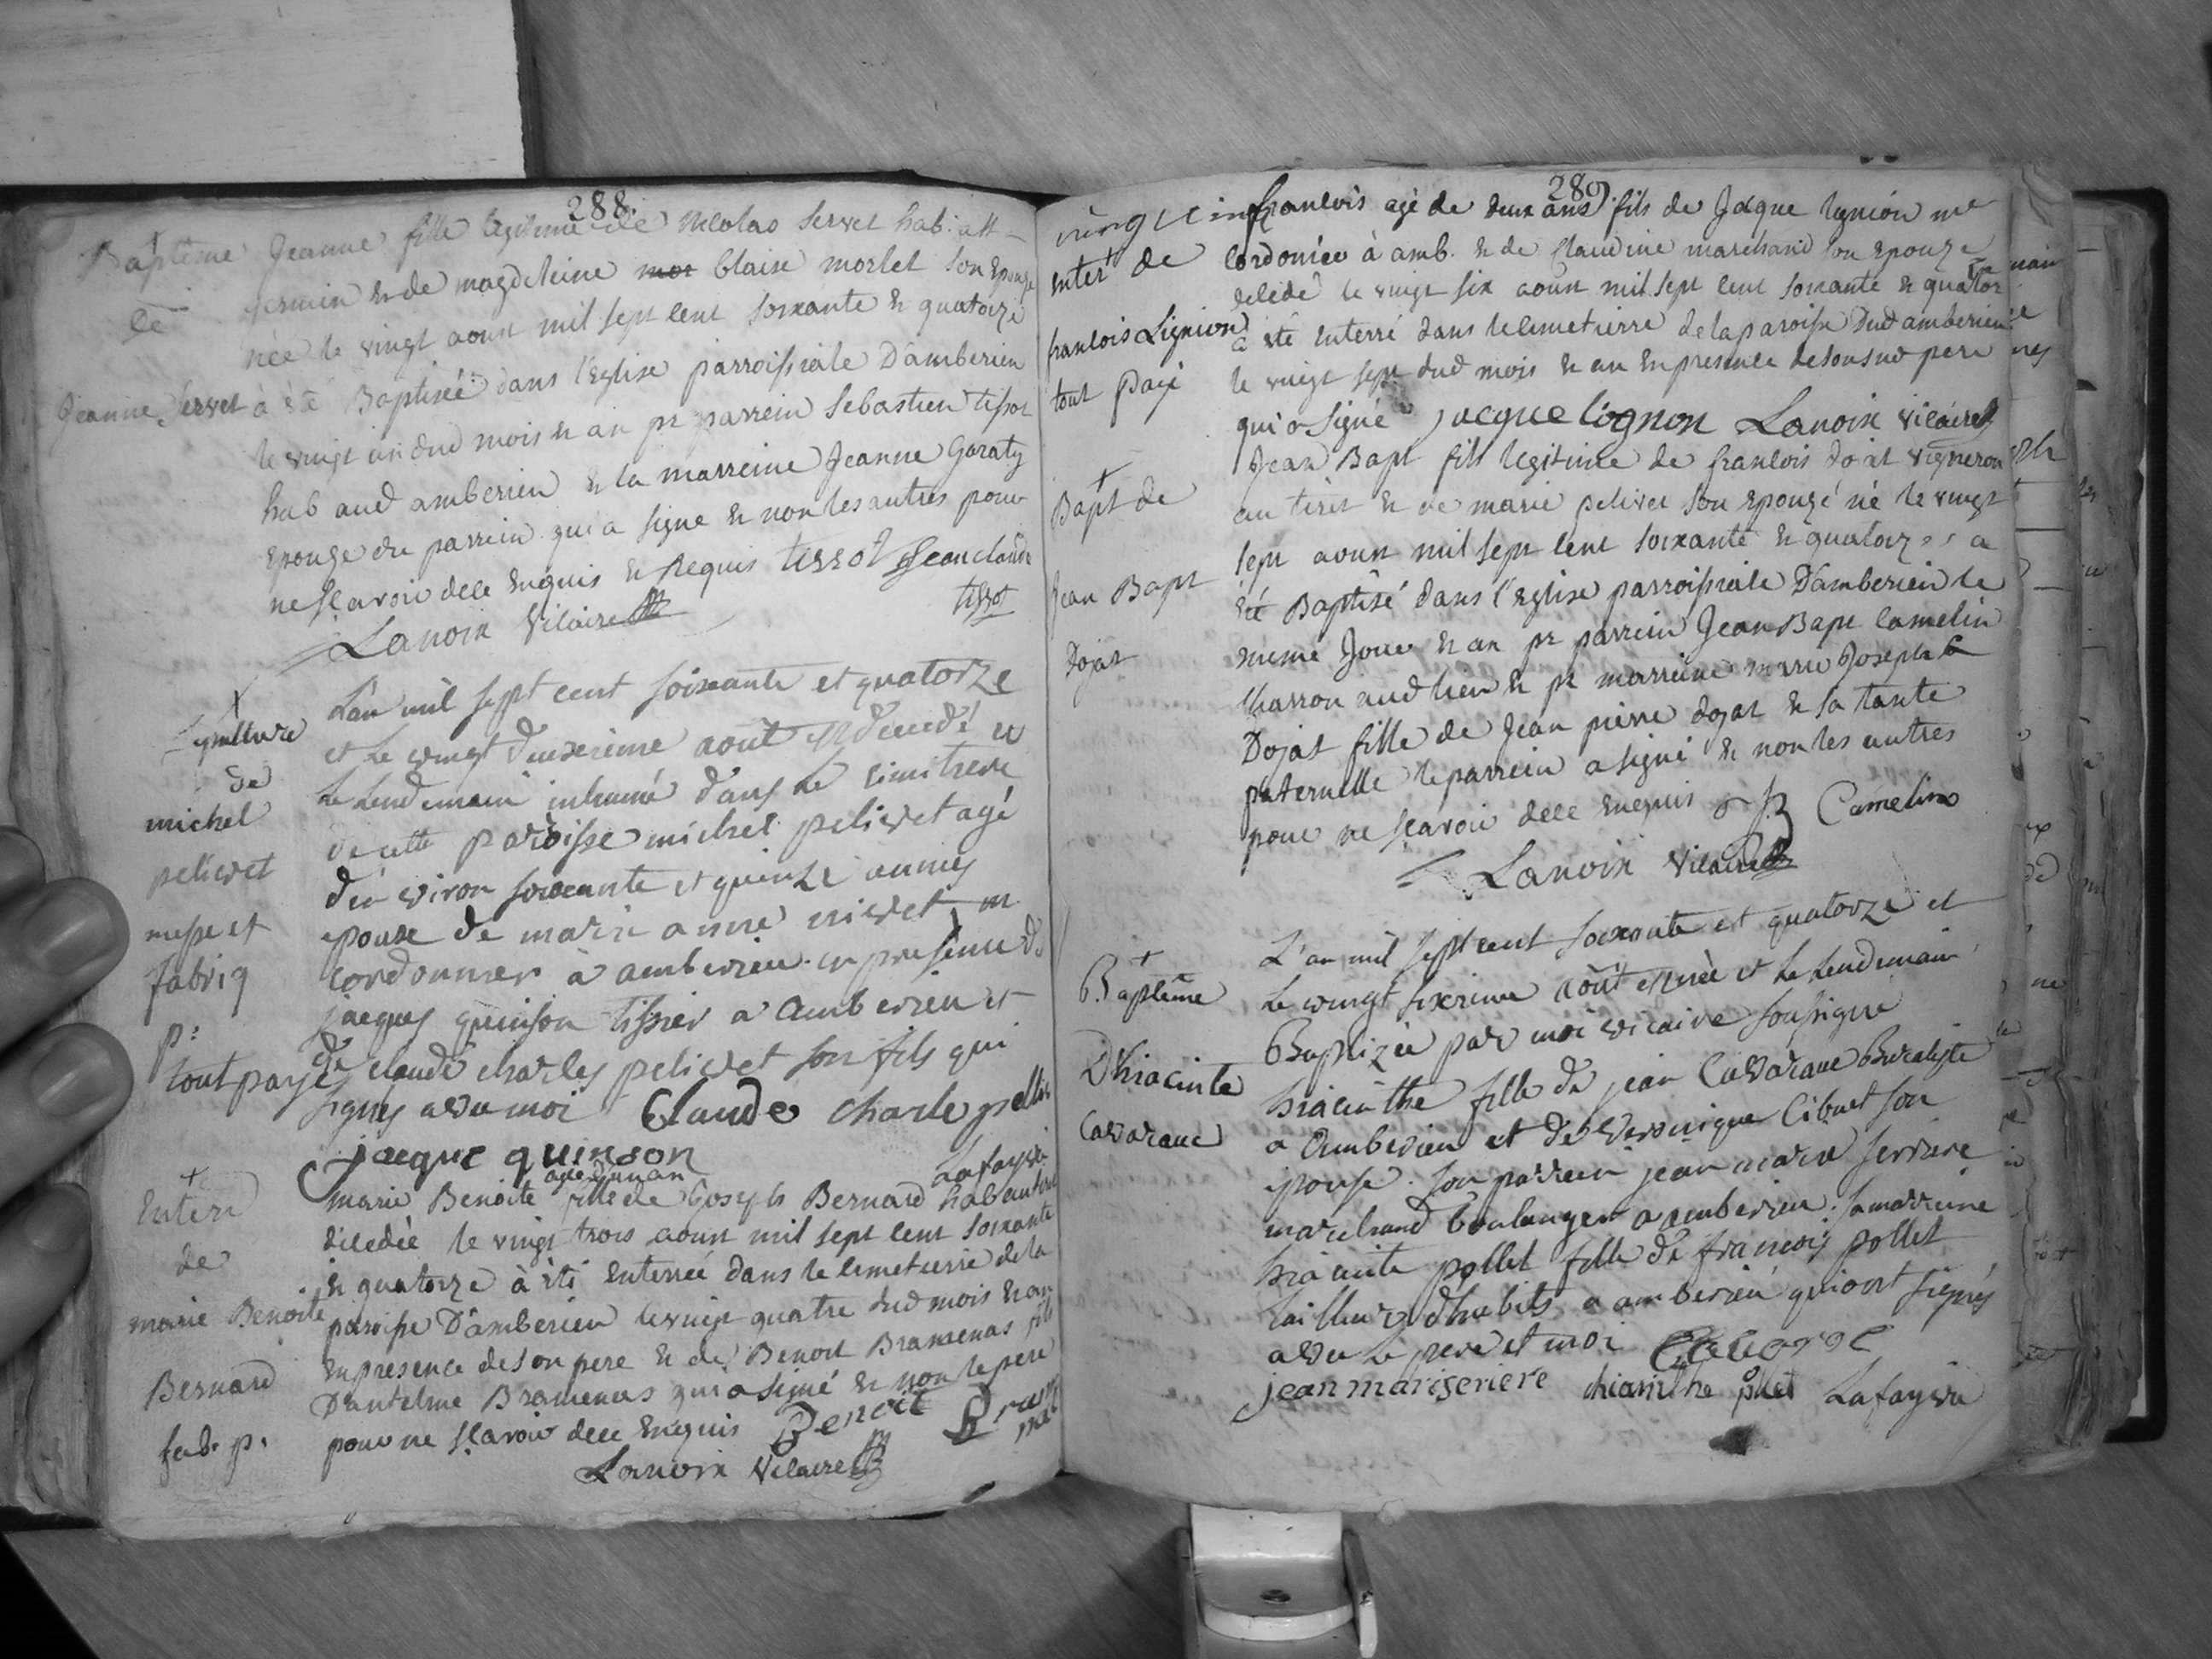 288.
Baptême Jeanne fille legitime de Nicolas servet hab. a st
de germain & de magdeleine mor blaise morlet son epouze
née le vingt aoust mil sept cent soixante & quatorze
Jeanne servet a été Baptisée dans l'Eglise parroissiale D'amberieu
le vingt un dud mois & an pr parrein sebastien tissot
hab aud amberieu & la marreine Jeanne Garaty
epouze du parrein qui a signe & non les autres pour
ne sçavoir dece enquis & Requis tissot Jean claude
tissot
Lanoix vicaire
sepulture
de
michel
pelivet
messe et
fabriq
p:
tout payé
L'an mil sept cent soixante et quatorze
et le vingt deuxieme août est decedé et
le lendemain inhumé dans le cimitiere
de cette paroisse michel pelivet agé
d'en viron soixante et quinze années
epoux de marie anne nivet, m
cordonnier à amberieu. en presence de
jaques quinson tissier a amberieu et
de claude charles pelivet son fils qui
signés avec moi Claude charle pelliv
jacque quinson
Lafayvi
Enterr
de
marie Benoite
Bernard
fab. p.
agée d'un an
marie Benoite fille de Joseph Bernard hab au tiret
décedée le vingt trois aoust mil sept cent soixante
& quatorze à été enterrée dans le cemetierre de la
paroisse D'amberieu le vingt quatre dud mois & an
en presence de son pere & de Benoit Bramenas fils
D'antelme Bramenas qui a signé & non le pere
pour ne sçavoir dece enquis Benoit Bram
Lanoix vicaire
289
françois agé de deux ans fils de Jacque lignion me
enter de cordonier à amb. & de Claudine marchand son epouze
decedé le vingt six aoust mil sept cent soixante & quator
françois Lignion a été enterré dans le cemetierre de la paroisse dud amberieu
tout payé le vingt sept dud mois & an en presence de son sud pere
qui a signé jacque lognon Lanoix vicaire
Bapt de
Jean Bapt
Dojat
Jean Bapt fils legitime de françois dojat vigneron
au tiret & de marie pelivet son epouze né le vingt
sept aoust mil sept cent soixante & quatorze a
été Baptisé dans l'Eglise parroissiale D'amberieu le
meme Jour & an pr parrein Jean Bapt Camelin
charron aud lieu & pr marreine marie Joseph
Dojat fille de Jean pierre dojat & sa tante
paternelle le parrein a signé & non les autres
pour ne sçavoir dece enquis Camelin
Lanoix vicaire
Baptême
D'hiacinte
Cavarane
L'an mil sept cent soixante et quatorze et
le vingt sixieme août est née et le lendemain
Baptizée par moi vicaire soussigné
hiacinthe fille de jean Cavarane Buraliste
a amberieu et de veronique Cibuet son
epouse. son parrein jean marie serriere
marchand boulanger a amberieu. sa marreine
hiacinte pollet fille de françois pollet
tailleur d'habits a amberieu qui ont signés
avec le pere et moi
jean mari seriere hiacinthe pollet Lafayvi